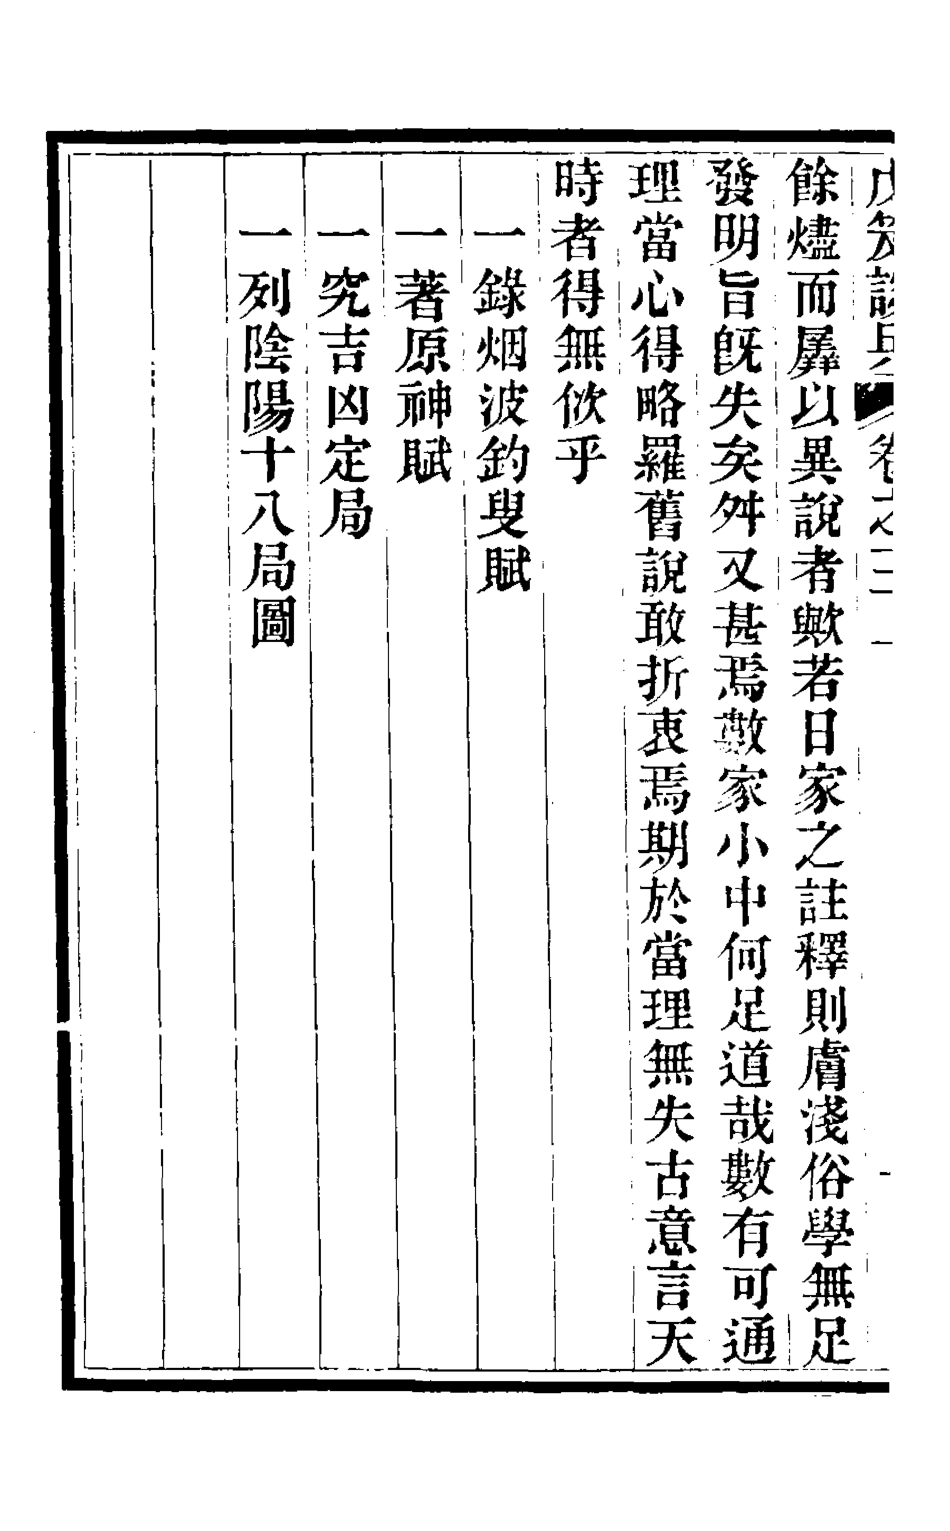 戊笈談兵 卷之二 一
餘燼而羼以異說者歟若日家之註釋則膚淺俗學無足
發明旨旣失矣舛又甚焉數家小中何足道哉數有可通
理當心得略羅舊說敢折衷焉期於當理無失古意言天
時者得無佽乎
一錄烟波釣叟賦
一著原神賦
一究吉凶定局
一列陰陽十八局圖